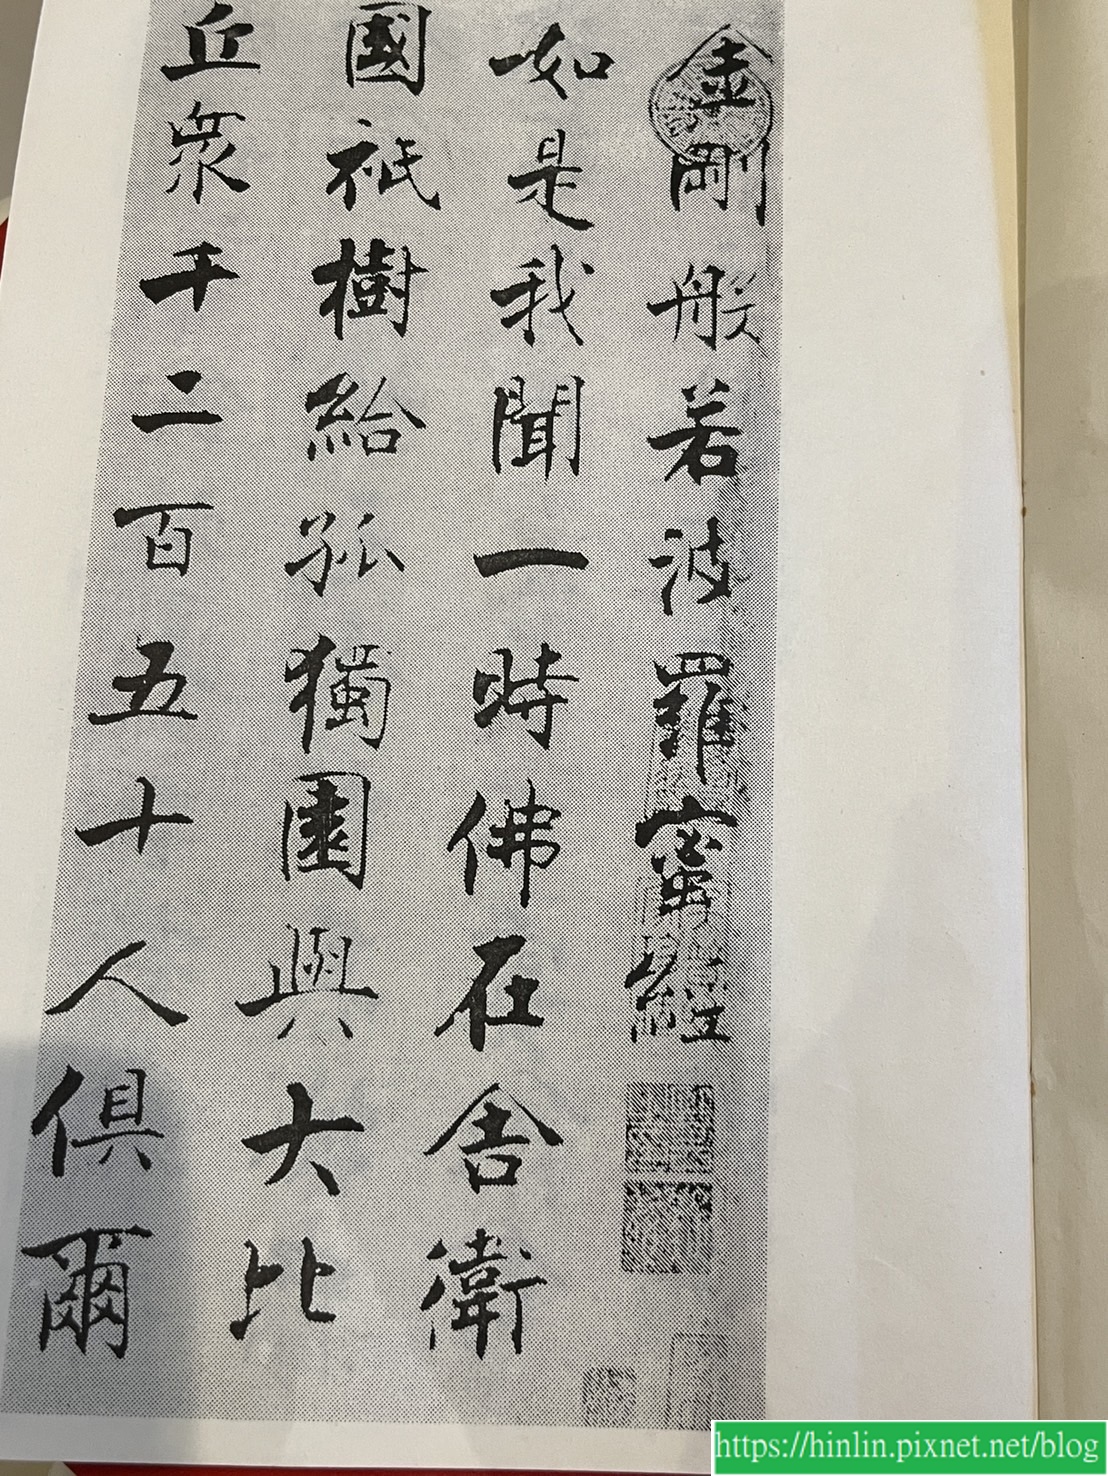 金剛般若波羅蜜經
如是我聞一時佛在舍衛
國祇樹給孤獨園與大比
丘衆千二百五十人俱爾
https://hinlin.pixnet.net/blog